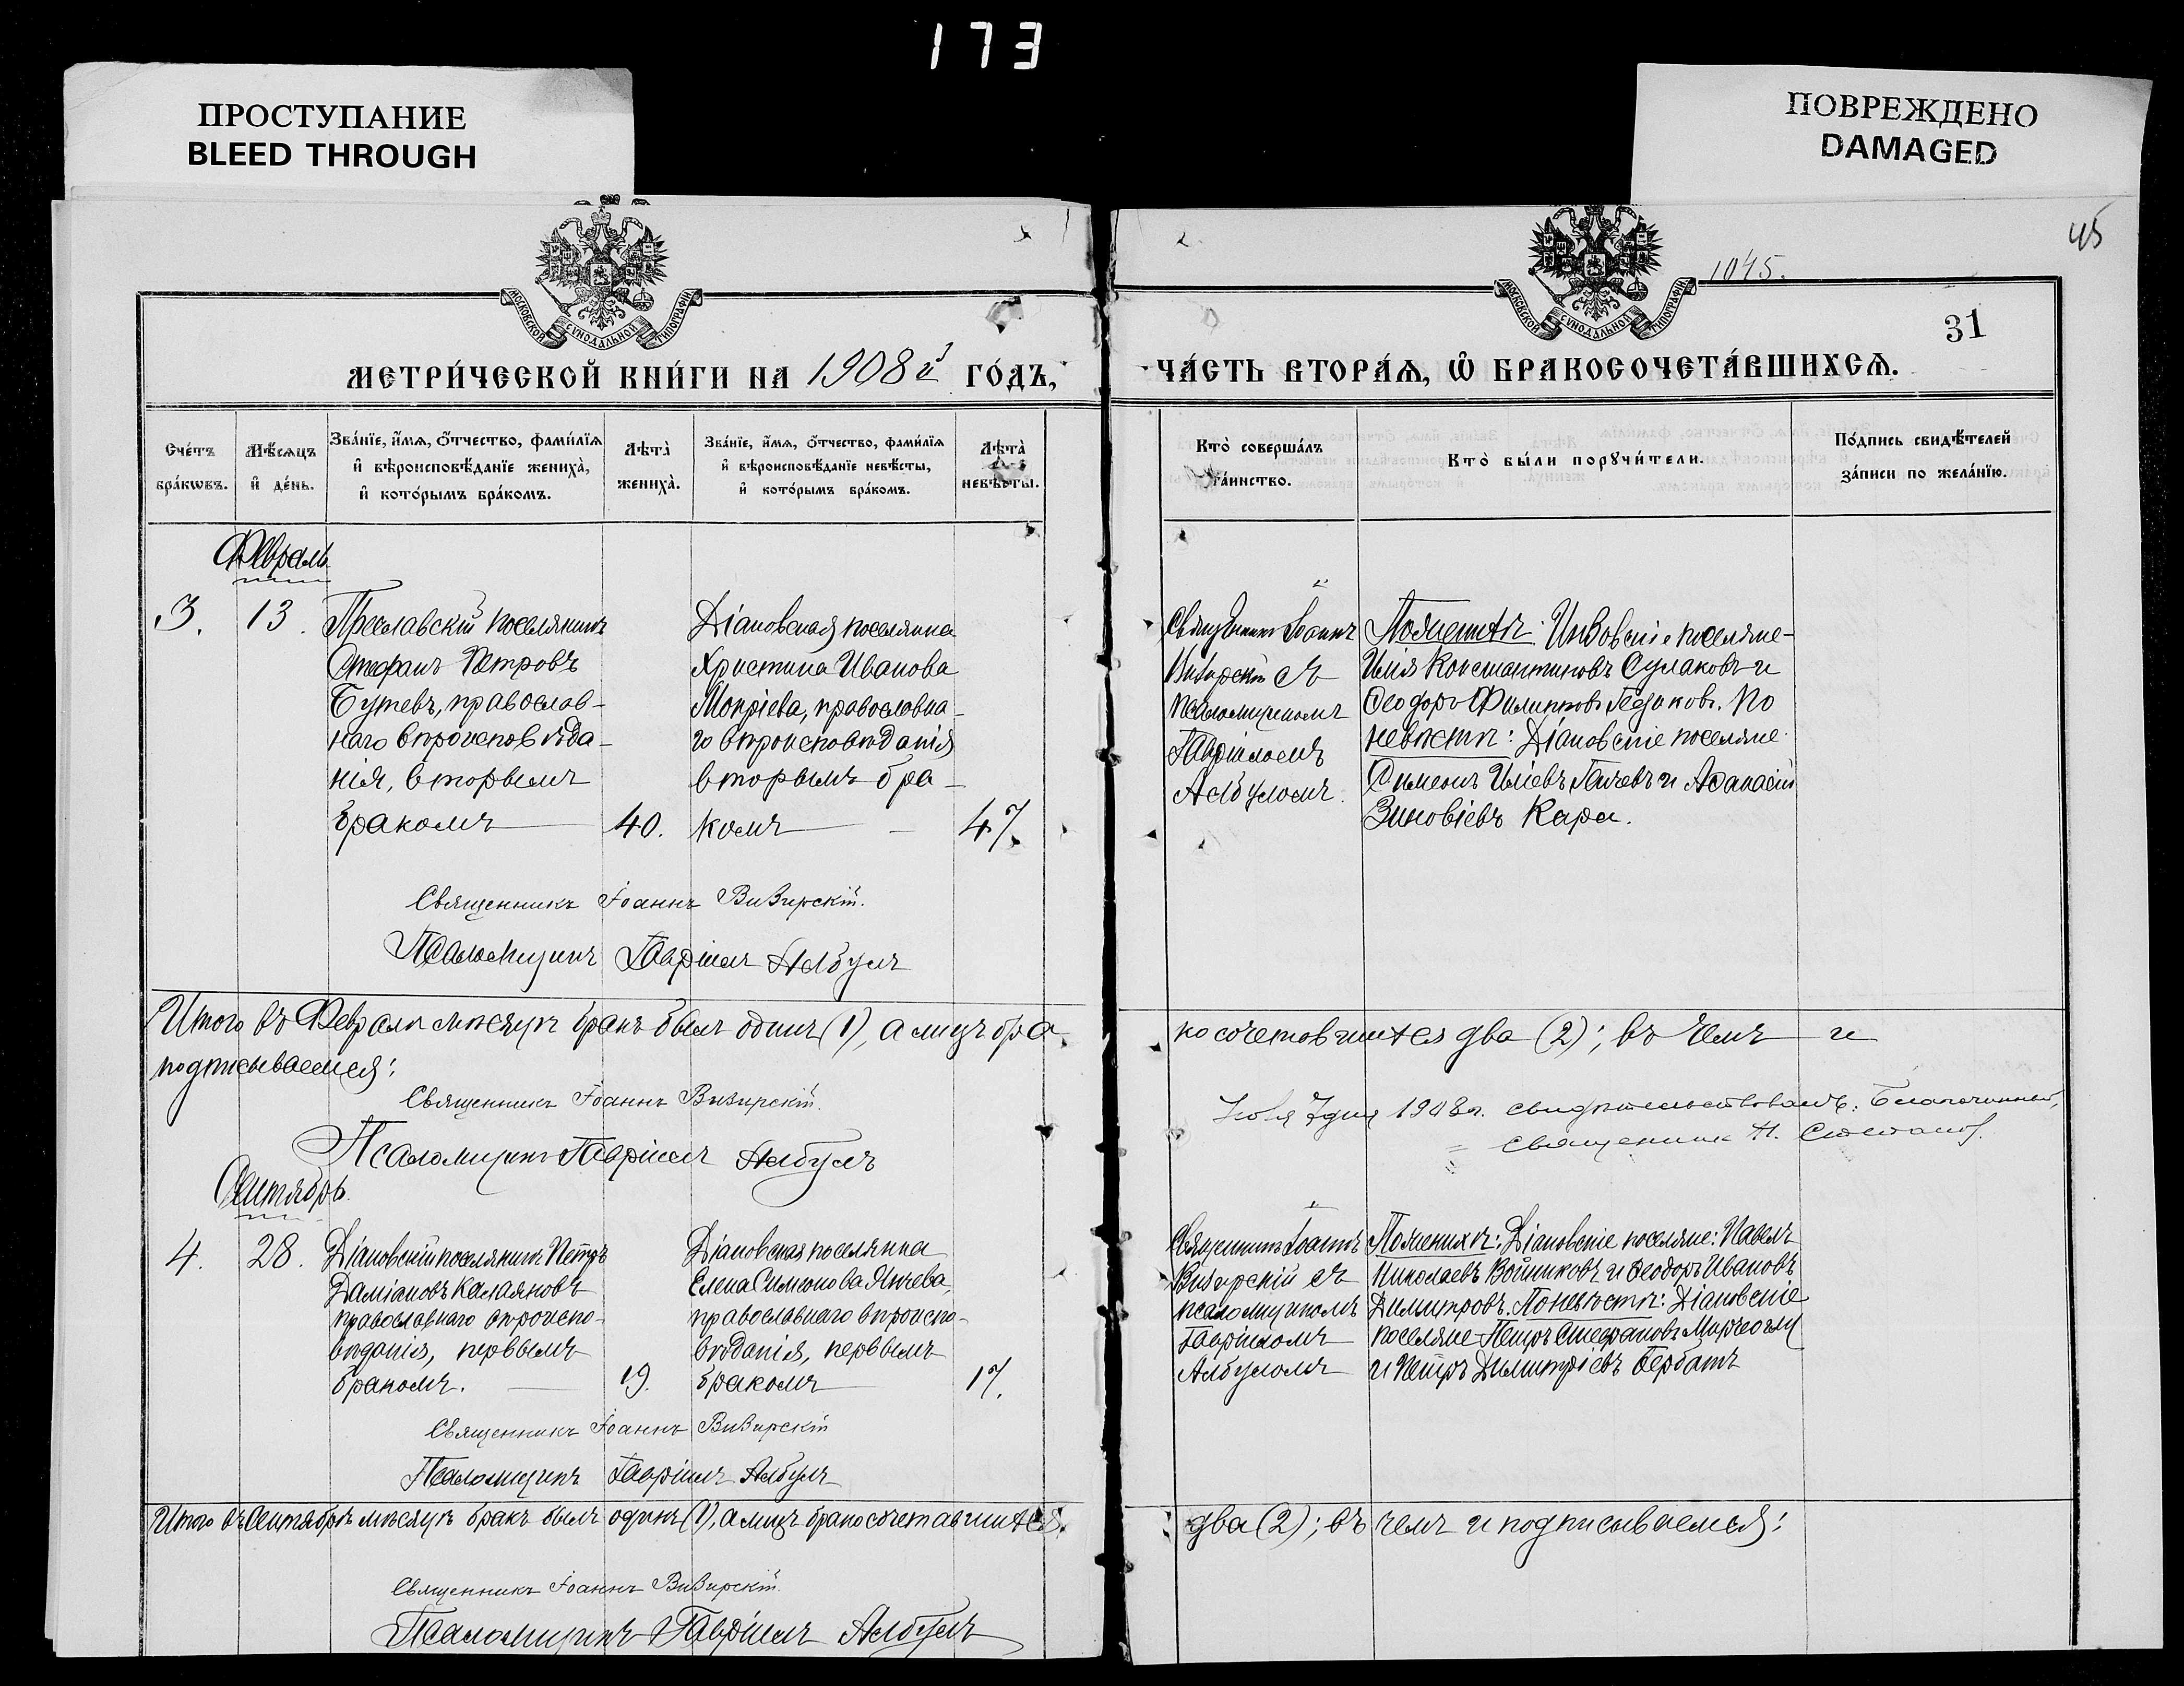 173
ПРОСТУПАНИЕ
BLEED THROUGH
ПОВРЕЖДЕНО
DAMAGED
45
1045.
31
МОСКОВСКОЙ СУНОДАЛЬНОЙ ТИПОГРАФІИ
МОСКОВСКОЙ СУНОДАЛЬНОЙ ТИПОГРАФІИ
МЕТРИ́ЧЕСКОЙ КНИ́ГИ НА 1908й ГО́ДЪ,
ЧА́СТЬ ВТОРА́Ѧ, Ѽ БРАКОСОЧЕТА́ВШИХСѦ.
Сче́тъ
бра́кѡвъ.
Мѣ́сѧцъ
и҆ де́нь.
Зва́нїе, и҆́мѧ, ѻ҆́тчество, фами́лїѧ
и҆ вѣроисповѣ́данїе жениха̀,
и҆ кото́рымъ бра́комъ.
Лѣта̀
жениха̀.
Зва́нїе, и҆́мѧ, ѻ҆́тчество, фами́лїѧ
и҆ вѣроисповѣ́данїе невѣ́сты,
и҆ кото́рымъ бра́комъ.
Лѣта̀
невѣ́сты.
Кто̀ соверша́лъ
та́инство.
Кто̀ бы́ли порꙋчи́тели.
По́дпись свидѣ́телей
за́писи по жела́нїю.
Февраль
3.
13.
Преславскій поселянинъ
Стефанъ Петровъ
Бутевъ, православ-
наго вѣроисповѣда-
нія, вторымъ
бракомъ
40.
Діановская поселянка
Христина Иванова
Мокріева, православна-
го вѣроисповѣданія
вторымъ бра-
комъ
47.
Священникъ Іоаннъ
Визирскій съ
псаломщикомъ
Гавріиломъ
Албуломъ.
По женихѣ: Инзовскіе поселяне-
Илія Константиновъ Сулаковъ и
Ѳеодоръ Филипповъ. По
невѣстѣ: Діановскіе поселяне.
Симеонъ Иліевъ и Аѳанасій
Зиновіевъ Кара.
Священникъ Іоаннъ Визирскій.
Псаломщикъ Гавріилъ Албулъ
Итого въ Февралѣ мѣсяцѣ бракъ былъ одинъ (1), а лицъ бра-
косочетавшихся два (2); въ чемъ и
подписываемся:
Священникъ Іоаннъ Визирскій.
Псаломщикъ Гавріилъ Албулъ
Іюля 7 дня 1908 г. свидѣтельствовалъ: Благочинный,
священникъ Н. Стефановъ.
Сентябрь
4.
28.
Діановскій поселянинъ Петръ
Даміановъ Калаяновъ
православнаго вѣроиспо-
вѣданія, первымъ
бракомъ.
19.
Діановская поселянка
Елена Симеонова Янчева,
православнаго вѣроиспо-
вѣданія, первымъ
бракомъ
17.
Священникъ Іоаннъ
Визирскій съ
псаломщикомъ
Гавріиломъ
Албуломъ
По женихѣ: Діановскіе поселяне: Павелъ
Николаевъ Войниковъ и Ѳеодоръ Ивановъ
Димитровъ. По невѣстѣ: Діановскіе
поселяне-Петръ Стефановъ Марчеоглу
и Петръ Димитріевъ Бербатъ
Священникъ Іоаннъ Визирскій
Псаломщикъ Гавріилъ Албулъ
Итого въ Сентябрѣ мѣсяцѣ бракъ былъ одинъ (1), а лицъ бракосочетавшихся
два (2); въ чемъ и подписываемся:
Священникъ Іоаннъ Визирскій.
Псаломщикъ Гавріилъ Албулъ